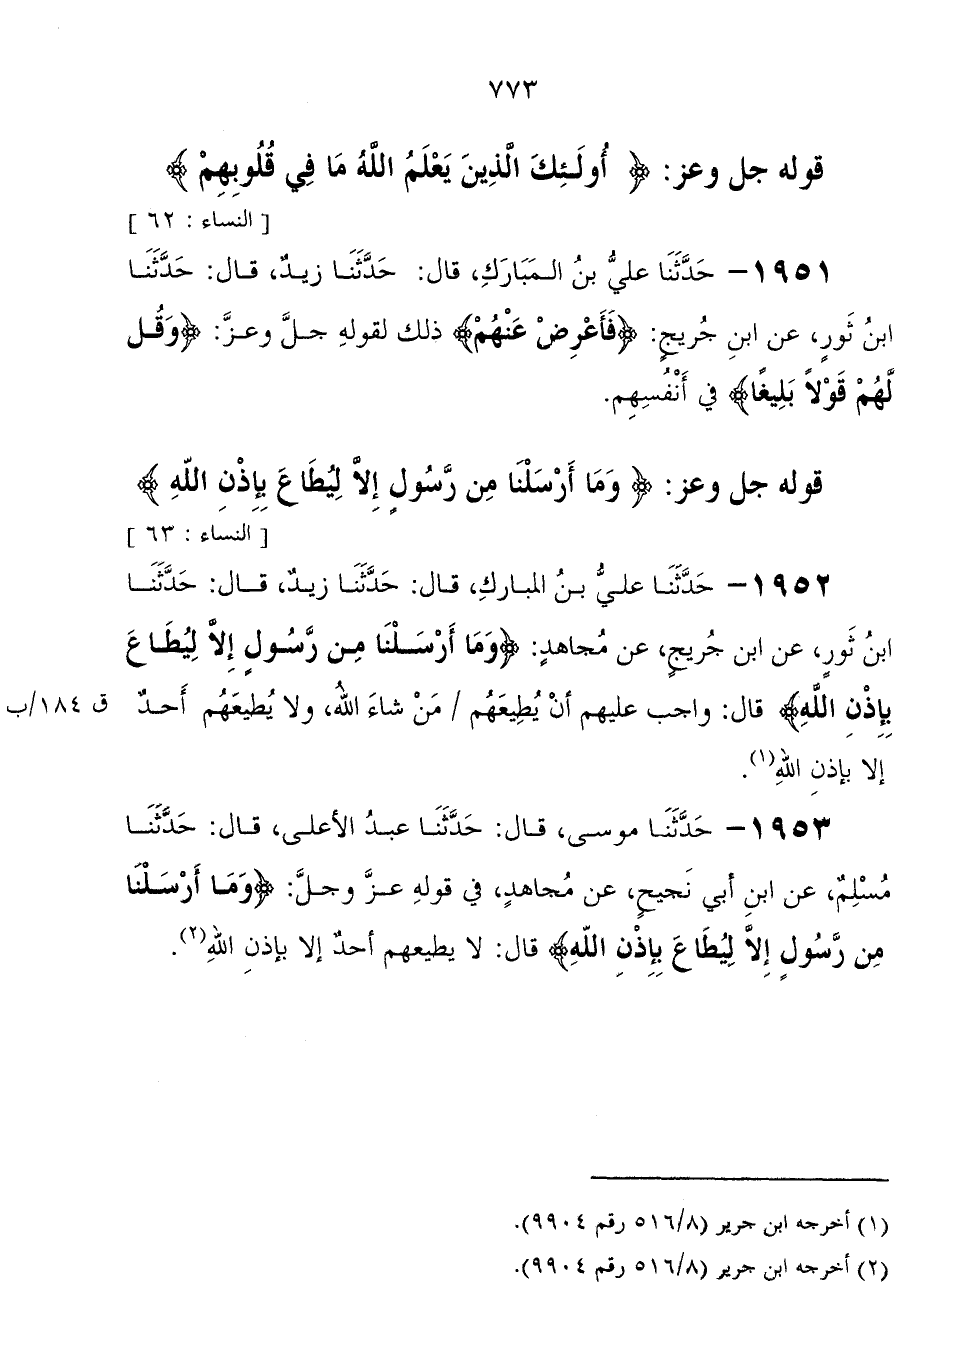 ٧٧٣
قوله جل وعز: ﴿ أُولَـئِكَ الَّذِينَ يَعْلَمُ اللَّهُ مَا فِي قُلُوبِهِمْ ﴾
[ النساء : ٦٢ ]
١٩٥١– حَدَّثَنَا عليُّ بنُ المَبَارَكِ، قال: حَدَّثَنَا زيدٌ، قال: حَدَّثَنَا
ابنُ ثَورٍ، عن ابنِ جُريجٍ: ﴿فَأَعْرِضْ عَنْهُمْ﴾ ذلك لقولهِ جلَّ وعزَّ: ﴿وَقُل
لَّهُمْ قَوْلاً بَلِيغًا﴾ في أَنْفُسِهِم.
قوله جل وعز: ﴿ وَمَا أَرْسَلْنَا مِن رَّسُولٍ إِلاَّ لِيُطَاعَ بِإِذْنِ اللّهِ ﴾
[ النساء : ٦٣ ]
١٩٥٢– حَدَّثَنَا عليُّ بنُ المباركِ، قال: حَدَّثَنَا زيدٌ، قال: حَدَّثَنَا
ابنُ ثَورٍ، عن ابن جُريجٍ، عن مُجاهدٍ: ﴿وَمَا أَرْسَلْنَا مِن رَّسُولٍ إِلاَّ لِيُطَاعَ
بِإِذْنِ اللَّهِ﴾ قال: واجب عليهم أنْ يُطِيعَهُم / مَنْ شاءَ اللهُ، ولا يُطيعَهُم أَحدٌ ق ١٨٤/ب
إلا بإذنِ اللهِ(١).
١٩٥٣– حَدَّثَنَا موسى، قال: حَدَّثَنَا عبدُ الأعلى، قال: حَدَّثَنَا
مُسْلِمٌ، عن ابنِ أبي نَجيحٍ، عن مُجاهدٍ، في قولهِ عزَّ وجلَّ: ﴿وَمَا أَرْسَلْنَا
مِن رَّسُولٍ إِلاَّ لِيُطَاعَ بِإِذْنِ اللّهِ﴾ قال: لا يطيعهم أحدٌ إلا بإذنِ اللهِ(٢).
(١) أخرجه ابن جرير (٥١٦/٨ رقم ٩٩٠٤).
(٢) أخرجه ابن جرير (٥١٦/٨ رقم ٩٩٠٤).